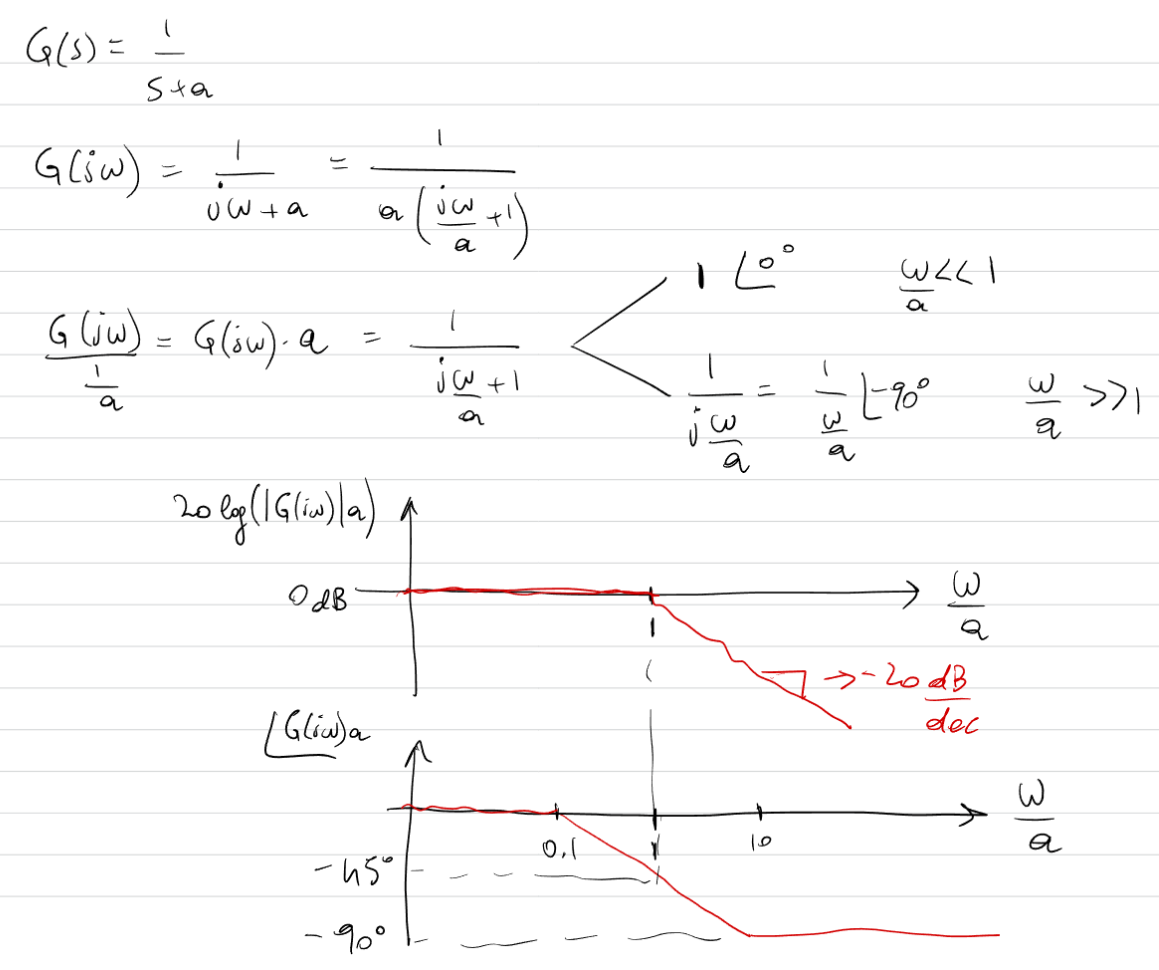 G(s) = 1/(s+a)
G(jω) = 1/(jω+a) = 1/(a(jω/a +1))
1 ∠0° ω/a << 1
G(jω)/(1/a) = G(jω)·a = 1/(jω/a +1)
1/(j ω/a) = 1/(ω/a) ∠-90° ω/a >> 1
20 log(|G(jω)|a)
0 dB
ω/a
1
→ -20 dB/dec
∠G(jω)a
ω/a
0,1 1 10
-45°
-90°